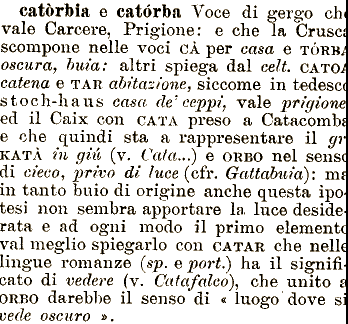 catòrbia e catórba Voce di gergo ch
vale Carcere, Prigione: e che la Crusc
scompone nelle voci CÀ per casa e TÓRB
oscura, buia: altri spiega dal celt. CATO
catena e TAR abitazione, siccome in tedesc
stoch-haus casa de' ceppi, vale prigione
ed il Caix con CATA preso a Catacomb
e che quindi sta a rappresentare il gr
KATÀ in giù (v. Cata...) e ORBO nel sens
di cieco, privo di luce (cfr. Gattabuia): m
in tanto buio di origine anche questa ipo
tesi non sembra apportare la luce deside
rata e ad ogni modo il primo element
val meglio spiegarlo con CATAR che nell
lingue romanze (sp. e port.) ha il signifi
cato di vedere (v. Catafalco), che unito a
ORBO darebbe il senso di « luogo dove si
vede oscuro ».